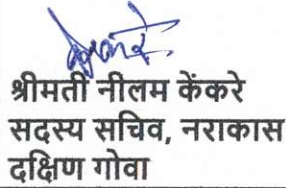 श्रीमती नीलम केंकरे
सदस्य सचिव, नराकास
दक्षिण गोवा